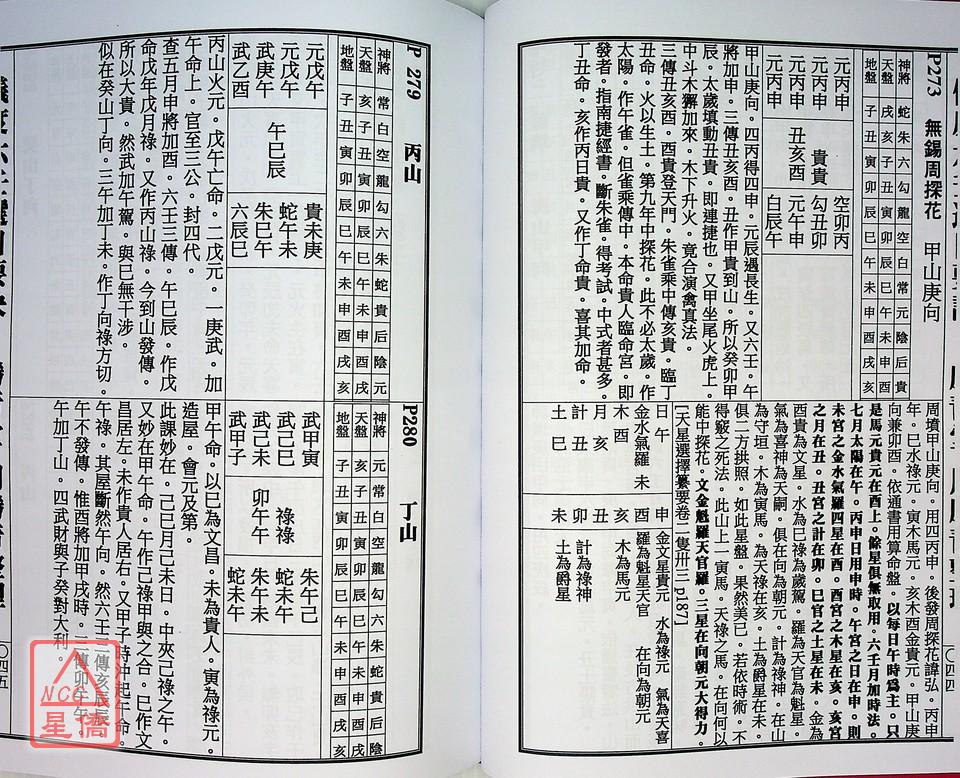 P273　無錫周探花　甲山庚向
神將 蛇 朱 六 勾 龍 空 白 常 元 陰 后 貴
天盤 戌 亥 子 丑 寅 卯 辰 巳 午 未 申 酉
地盤 子 丑 寅 卯 辰 巳 午 未 申 酉 戌 亥
元丙申
元丙申
元丙申
元丙申
貴貴
丑亥酉
空卯丙
勾丑卯
元午申
白辰午
甲山庚向。四丙得四申。元辰遇長生。又六壬。午
將加申。三傳丑亥酉。丑作甲貴到山。所以癸卯甲
辰。太歲填動丑貴。即連捷也。又甲坐尾火虎上。
中斗木獬加來。木下升火。竟合演禽真法。
三傳丑亥酉。酉貴登天門。朱雀乘中傳亥貴。臨丁
丑命。火以生土。第九年中探花。此不必太歲。作
太陽。作午雀。但雀乘傳中。本命貴人臨命宮。即
發者。指南捷經書。斷朱雀。得考試。中式者甚多。
丁丑命。亥作丙日貴。又作丁命貴。喜其加命。
周墳甲山庚向。用四丙申。後發周探花諱弘。丙申
年。巳水祿元。寅木馬元。亥木酉金貴元。甲山庚
向兼卯酉。依通書用算命盤。以每日午時為主。只
是馬元貴元在酉上。餘星俱無取用。六壬月加時法。
七月太陽在午。丙申日用申時。午宮之日在申。則
未宮之金水氣羅四星在酉。酉宮之木星在亥。亥宮
之月在丑。丑宮之計在卯。巳宮之土星在未。金為
酉貴為文星。水為巳祿為歲駕。羅為天官為魁星。
氣為喜神為天嗣。俱在向為朝元。計為祿神。在山
為守垣。木為寅馬。為天祿在亥。土為爵星在未。
俱二方拱照。如此星盤。果然美已。若依時術。不
得竅之死法。此山上一寅馬。天祿之馬。在向何以
能中探花。文金魁羅天官羅。三星在向朝元大得力。
【天星選擇纂要卷二隻卅三 p187】
日　午
金水氣羅　未
木　酉
月　亥
計　丑
土　巳
申
酉
亥
丑
卯
未
金文星貴元　水為祿元　氣為天喜
羅為魁星天官　在向為朝元
木為馬元
計為祿神
土為爵星
〇四四
P 279　丙山
神將 常 白 空 龍 勾 六 朱 蛇 貴 后 陰 元
天盤 亥 子 丑 寅 卯 辰 巳 午 未 申 酉 戌
地盤 子 丑 寅 卯 辰 巳 午 未 申 酉 戌 亥
元戊午
元戊午
武庚午
武乙酉
午巳辰
貴未庚
蛇午未
朱巳午
六辰巳
丙山火元。戊午亡命。二戊元。一庚武。加
午命上。官至三公。封四代。
查五月申將加酉。六壬三傳。午巳辰。作戊
命戊年戊月祿。又作丙山祿。今到山發傳。
所以大貴。然武加午駕。與巳無干涉。
似在癸山丁向。三午加丁未。作丁向祿方切。
P280　丁山
神將 元 常 白 空 龍 勾 六 朱 蛇 貴 后 陰
天盤 亥 子 丑 寅 卯 辰 巳 午 未 申 酉 戌
地盤 子 丑 寅 卯 辰 巳 午 未 申 酉 戌 亥
武甲寅
武己巳
武己未
武甲子
祿祿
卯午午
朱午己
蛇未午
朱午未
蛇未午
甲午命。以巳為文昌。未為貴人。寅為祿元。
造屋。會元及第。
此課妙在。己巳月己未日。中夾己祿之午。
又妙在甲午命。午作己祿甲與之合。巳作文
昌居左。未作貴人居右。又甲子時沖起午命。
午祿。其屋斷然午向。然六壬三傳亥辰辰。
午不發傳。惟酉將加甲戌時。三傳卯午午。
午加丁山。四武財與子癸對大利。
〇四五
NCC
星僑